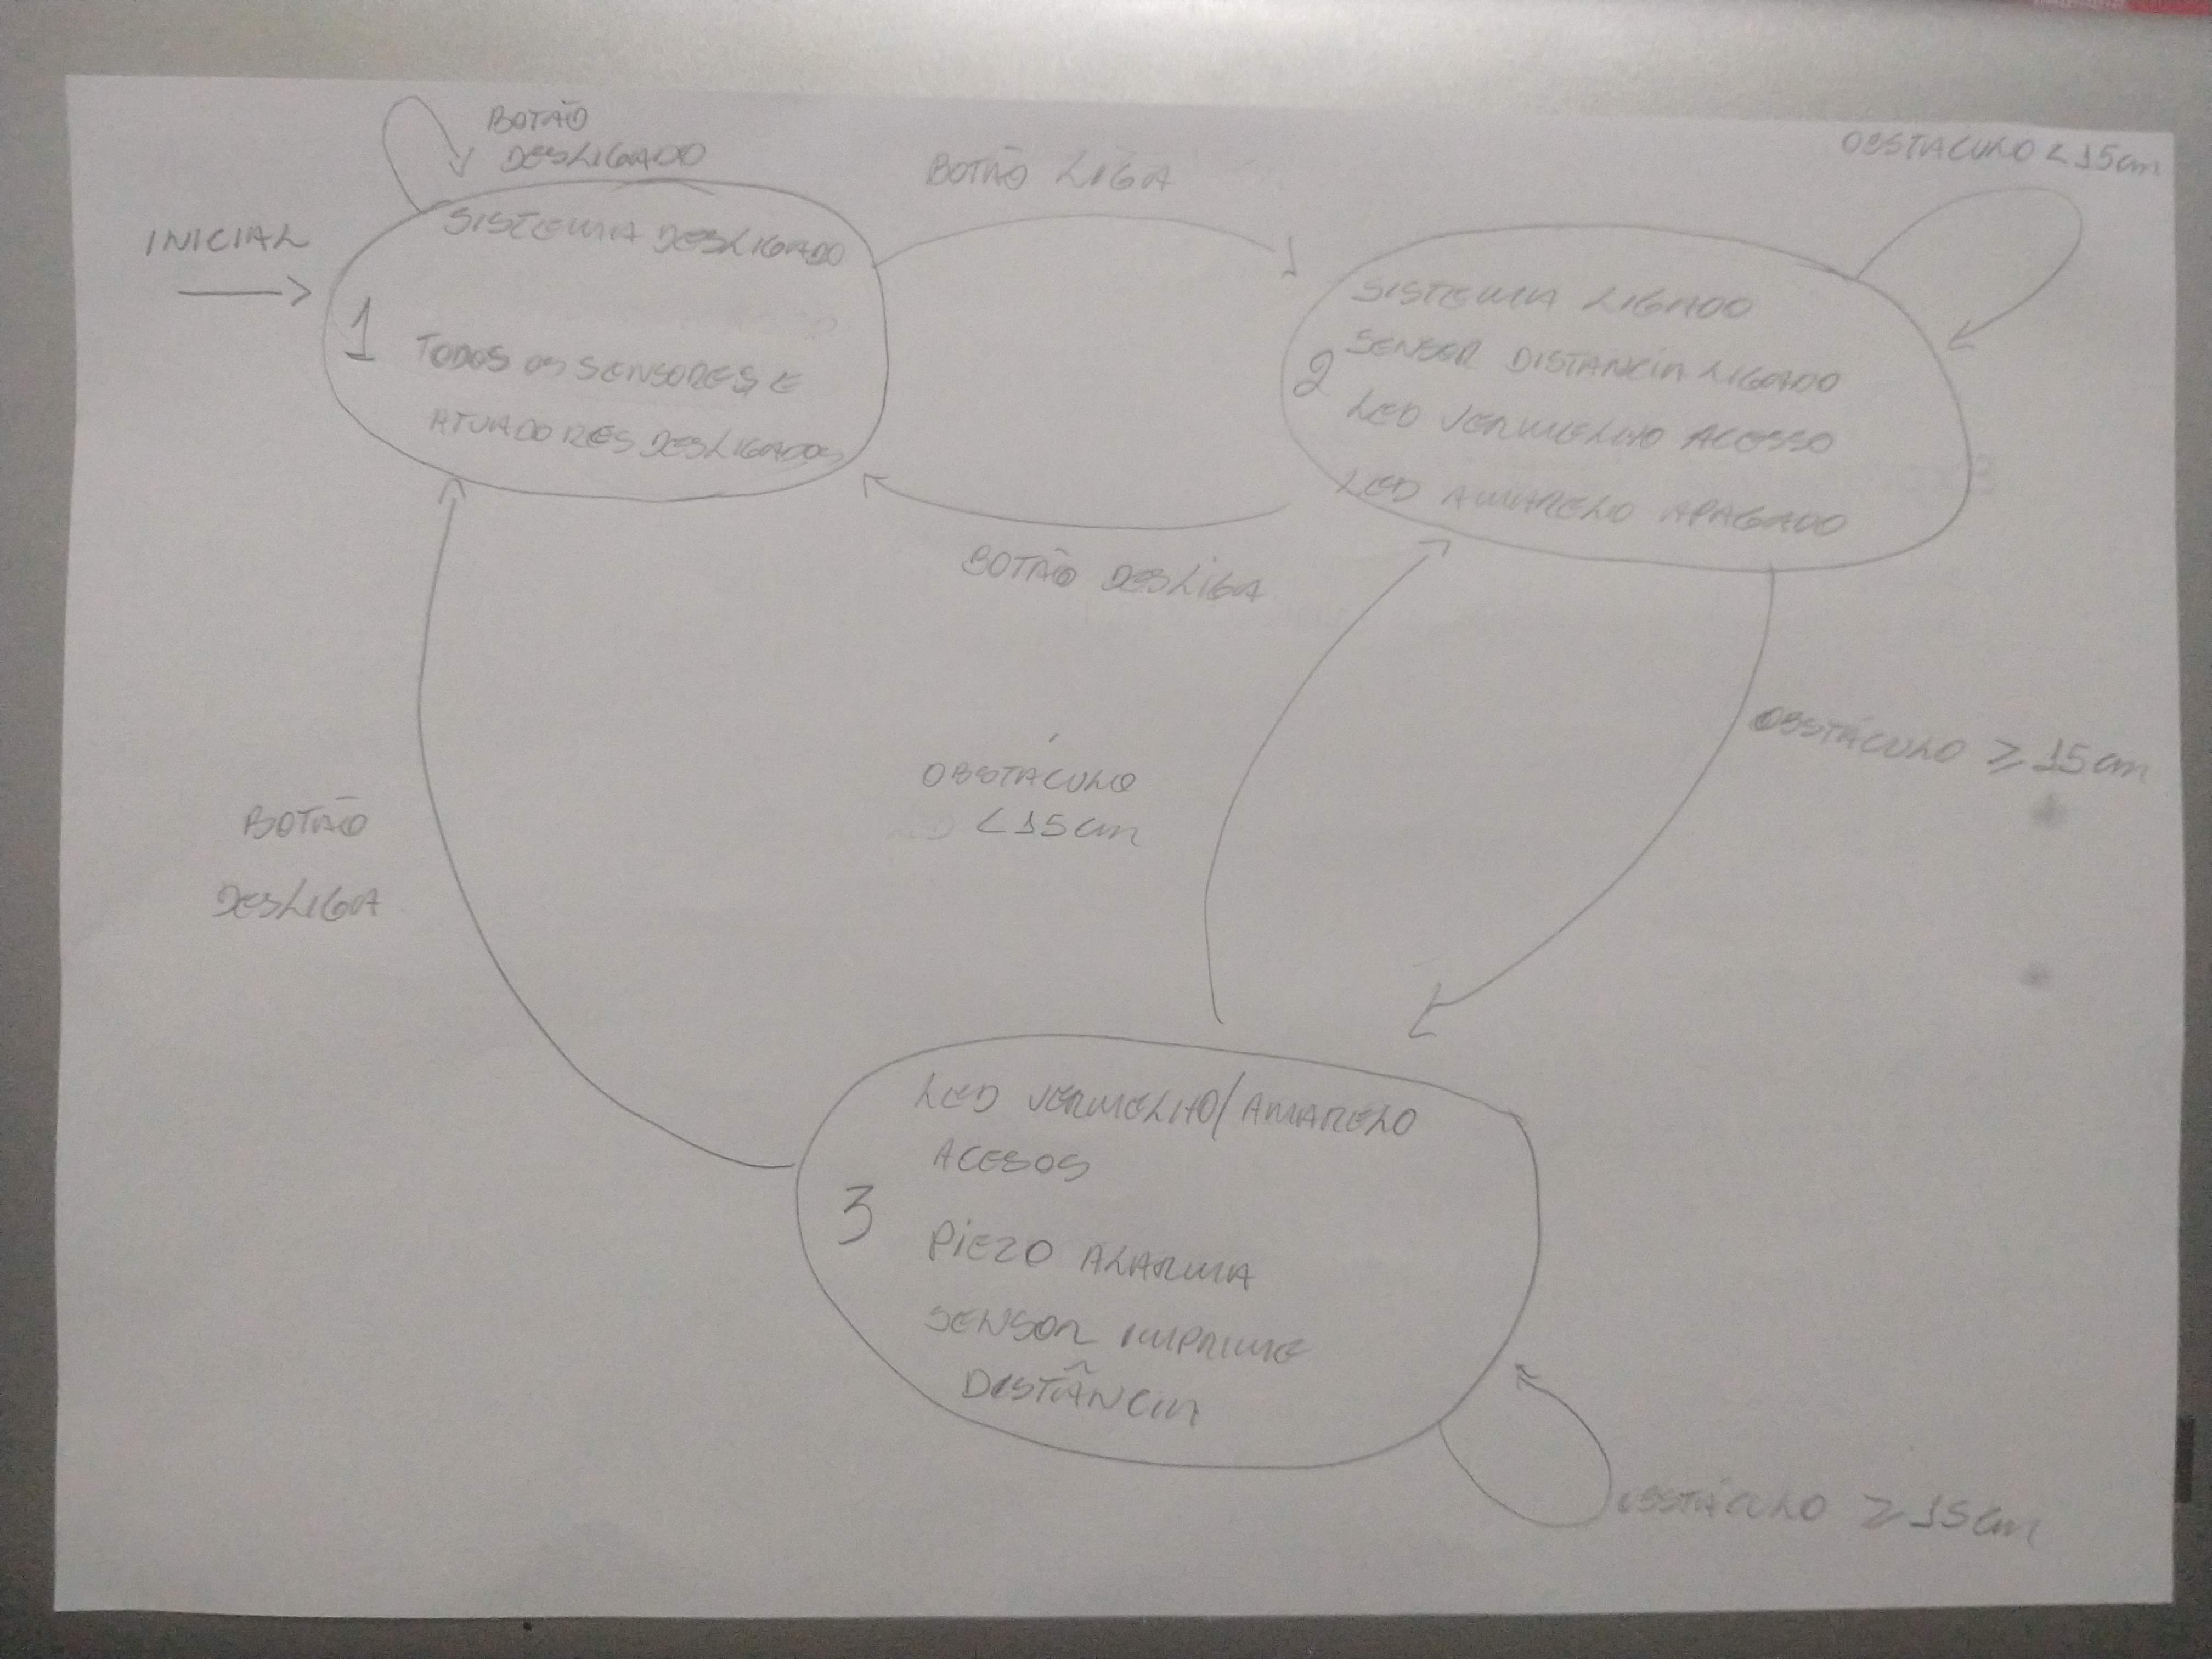 BOTÃO
DESLIGADO
INICIAL
SISTEMA DESLIGADO
1
TODOS OS SENSORES E
ATUADORES DESLIGADOS
BOTÃO LIGA
OBSTACULO < 15cm
SISTEMA LIGADO
SENSOR DISTANCIA LIGADO
2
LED VERMELHO ACESSO
LED AMARELO APAGADO
BOTÃO DESLIGA
OBSTÁCULO ≥ 15cm
OBSTÁCULO
< 15cm
BOTÃO
DESLIGA
LED VERMELHO/AMARELO
ACESOS
3
PIEZO ALARMA
SENSOR IMPRIME
DISTÂNCIA
OBSTÁCULO ≥ 15cm